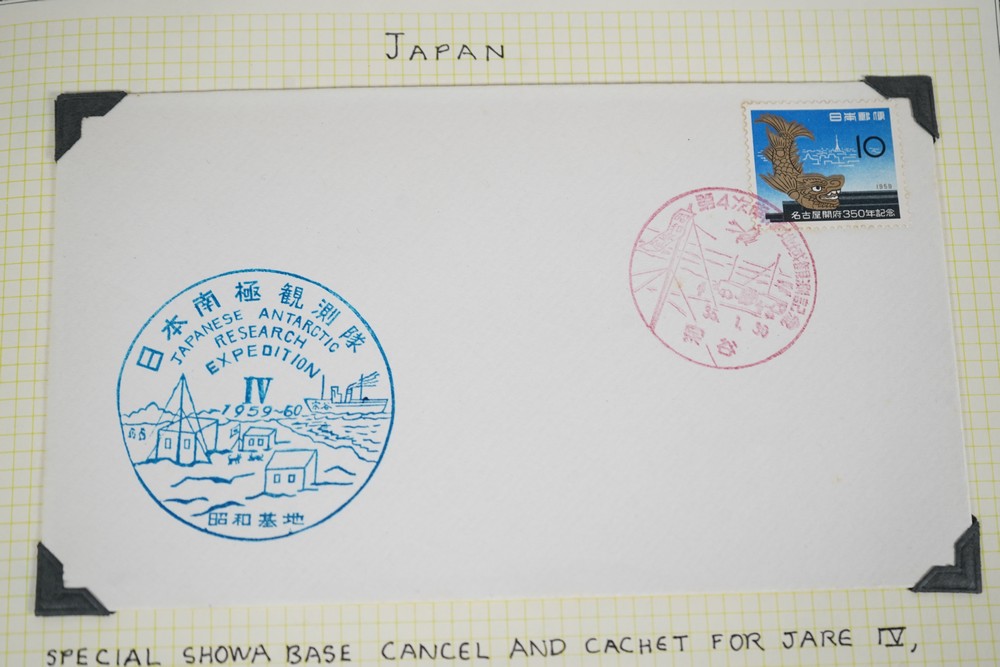 JAPAN
日本郵便
10
1959
名古屋開府350年記念
第4次
35. 1. 30
渋谷
日本南極観測隊
JAPANESE ANTARCTIC
RESEARCH
EXPEDITION
IV
1959~60
昭和基地
SPECIAL SHOWA BASE CANCEL AND CACHET FOR JARE IV,